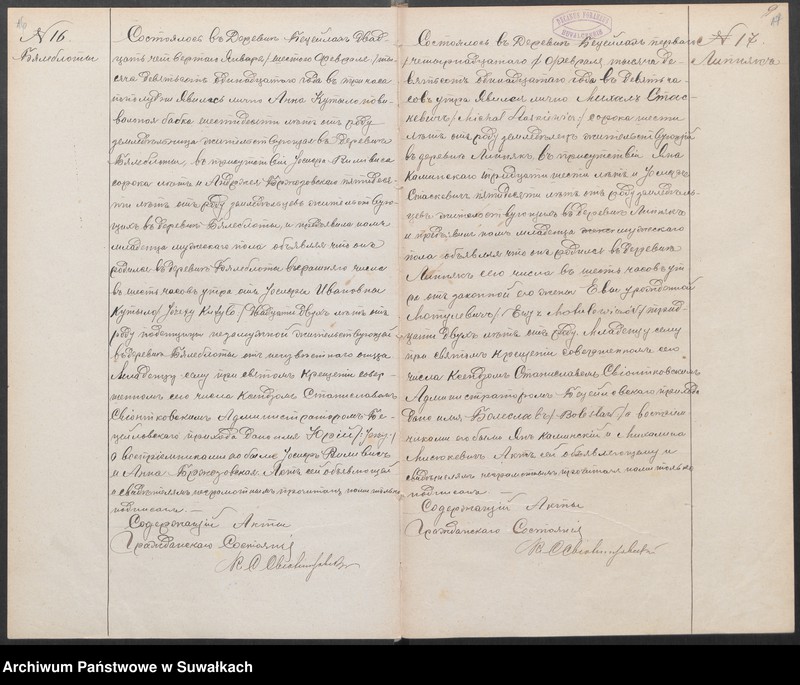 № 16.
Бялеблоты
Состоялось въ Деревнѣ Бецейлахъ Двад-
цать четвертаго Января/шестого Февраля/ты-
сяча девятьсотъ одинадцатаго года въ три часа
пополудни Явилась лично Анна Кутыло пови-
вальная бабка шестидесяти лѣтъ отъ роду
жительствующая въ Деревнѣ
Бялеблоты, въ присутствіи Іосифа
сорока лѣтъ и Андржея Бржозовскаго пятидеся-
ти лѣтъ отъ роду земледѣльцевъ жительствую-
щихъ въ деревнѣ Бялеблоты, и предъявила намъ
младенца мужескаго пола объявляя что онъ
родился въ деревнѣ Бялеблоты вчерашняго числа
въ шесть часовъ утра отъ Іосифы Ивановны
Кутыло /Józefy Kutyło/ двадцати двухъ лѣтъ отъ
роду незамужней жительствующей
въ деревнѣ Бялеблоты отъ неизвѣстнаго отца
Младенцу сему при святомъ Крещеніи совер-
шенномъ сего числа Ксендзомъ Станиславомъ
Свіонтковскимъ Администраторомъ Бе-
цейловскаго прихода дано имя Юрій /:Jerzy:/
а воспріемниками его были Іосифъ
и Анна Бржозовская. Актъ сей объявляющей
и свидѣтелямъ неграмотнымъ прочитанъ нами только
подписанъ. —
Содержащій Акты
Гражданскаго Состоянія
К. С. Свіонтковскій
№ 17.
Липнякъ
Состоялось въ Деревнѣ Бецейлахъ перваго
/четырнадцатаго/ Февраля тысяча де-
вятьсотъ одинадцатаго года въ девять ча-
совъ утра Явился лично Михалъ Стас-
кевичъ /Michał Staskiewicz/ сорока шести
лѣтъ отъ роду земледѣлецъ жительствующій
въ деревнѣ Липнякъ, въ присутствіи Яна
Калинскаго тридцати шести лѣтъ и Іосифа
Стаскевичъ пятидесяти лѣтъ отъ роду земледѣль-
цевъ жительствующихъ въ деревнѣ Липнякъ
и предъявилъ намъ младенца мужескаго
пола объявляя что онъ родился въ деревнѣ
Липнякъ сего числа въ шесть часовъ ут-
ра отъ законной его жены Евы урожденной
Мотулевичъ /Ewy z Motulewiczów/ тридд-
цати двухъ лѣтъ отъ роду. Младенцу сему
при святомъ Крещеніи совершенномъ сего
числа Ксендзомъ Станиславомъ Свіонтковскимъ
Администраторомъ Бецейловскаго прихода
дано имя Болеславъ /Bolesław/ а воспріем-
никами его были Янъ Калинскій и Михалина
Актъ сей объявляющему и
свидѣтелямъ неграмотнымъ прочитанъ нами только
подписанъ. —
Содержащій Акты
Гражданскаго Состоянія
К. С. Свіонтковскій
Archiwum Państwowe w Suwałkach